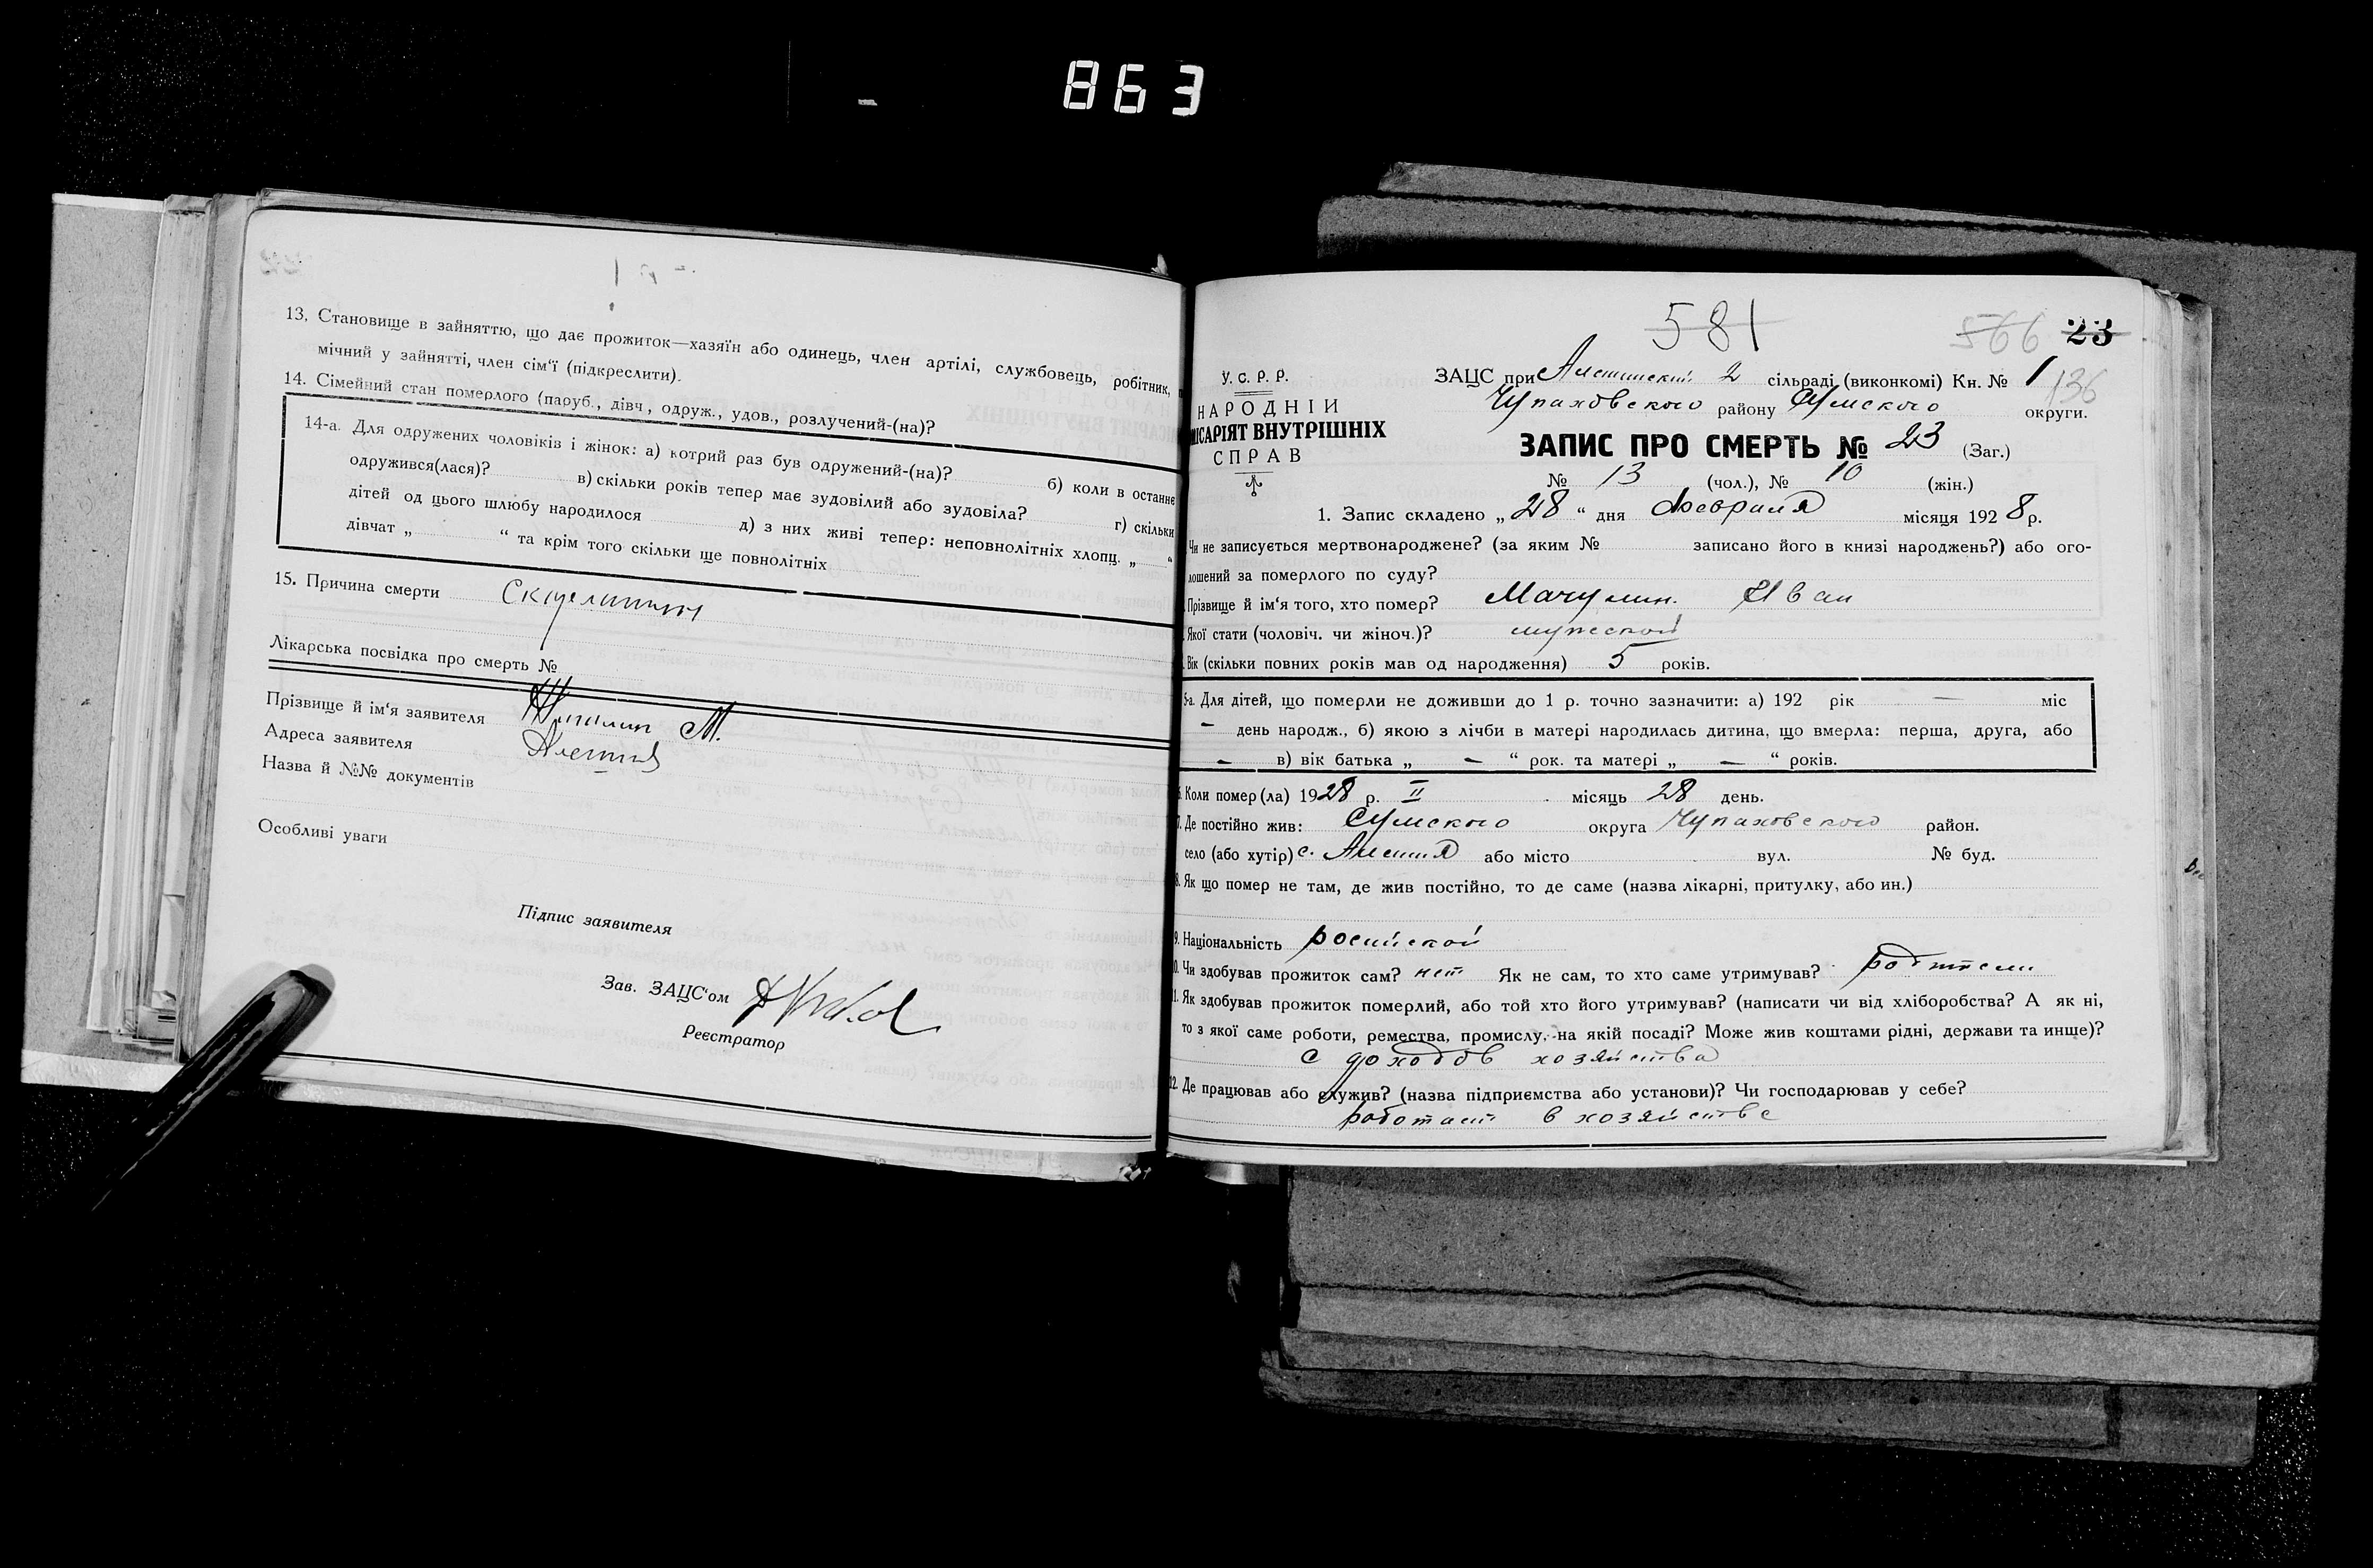 863
13. Становище в зайняттю, що дає прожиток—хазяїн або одинець, член артілі, службовець, робітник,
мічний у зайнятті, член сім'ї (підкреслити).
14. Сімейний стан померлого (паруб., дівч, одруж., удов., розлучений-(на)?
14-а. Для одружених чоловіків і жінок: а) котрий раз був одружений-(на)? б) коли в останнє
одружився(лася)? в) скільки років тепер має зудовілий або зудовіла? г) скільки
дітей од цього шлюбу народилося д) з них живі тепер: неповнолітніх хлопц. „ “
дівчат „ “ та крім того скільки ще повнолітніх
15. Причина смерти
Лікарська посвідка про смерть №
Прізвище й ім'я заявителя М.
Адреса заявителя
Назва й №№ документів
Особливі уваги
Підпис заявителя
Зав. ЗАЦС'ом
Реєстратор
581 566 23
У. С. Р. Р.
НАРОДНІЙ
МІСАРІЯТ ВНУТРІШНІХ
СПРАВ
ЗАЦС при 2 сільраді (виконкомі) Кн. № 1 136
Чупаховского району Сумского округи.
ЗАПИС ПРО СМЕРТЬ № 23 (Заг.)
№ 13 (чол.), № 10 (жін.)
1. Запис складено „28“ дня Февраля місяця 1928 р.
Чи не записується мертвонароджене? (за яким № записано його в книзі народжень?) або ого-
лошений за померлого по суду?
Прізвище й ім'я того, хто помер? Мачулин. Иван
Якої стати (чоловіч. чи жіноч.)? мужской
Вік (скільки повних років мав од народження) 5 років.
5-а. Для дітей, що померли не доживши до 1 р. точно зазначити: а) 192 рік — міс
— день народж., б) якою з лічби в матері народилась дитина, що вмерла: перша, друга, або
— в) вік батька „ — “ рок. та матері „ — “ років.
6. Коли помер (ла) 1928 р. II місяць 28 день.
7. Де постійно жив: Сумского округа Чупаховского район.
село (або хутір) с. або місто вул. № буд.
8. Як що помер не там, де жив постійно, то де саме (назва лікарні, притулку, або ин.)
9. Національність росийской
10. Чи здобував прожиток сам? нет Як не сам, то хто саме утримував? родители
11. Як здобував прожиток померлий, або той хто його утримував? (написати чи від хліборобства? А як ні,
то з якої саме роботи, ремества, промислу, на якій посаді? Може жив коштами рідні, держави та инще)?
с доходов хозяйства
12. Де працював або служив? (назва підприємства або установи)? Чи господарював у себе?
работает в хозяйстве